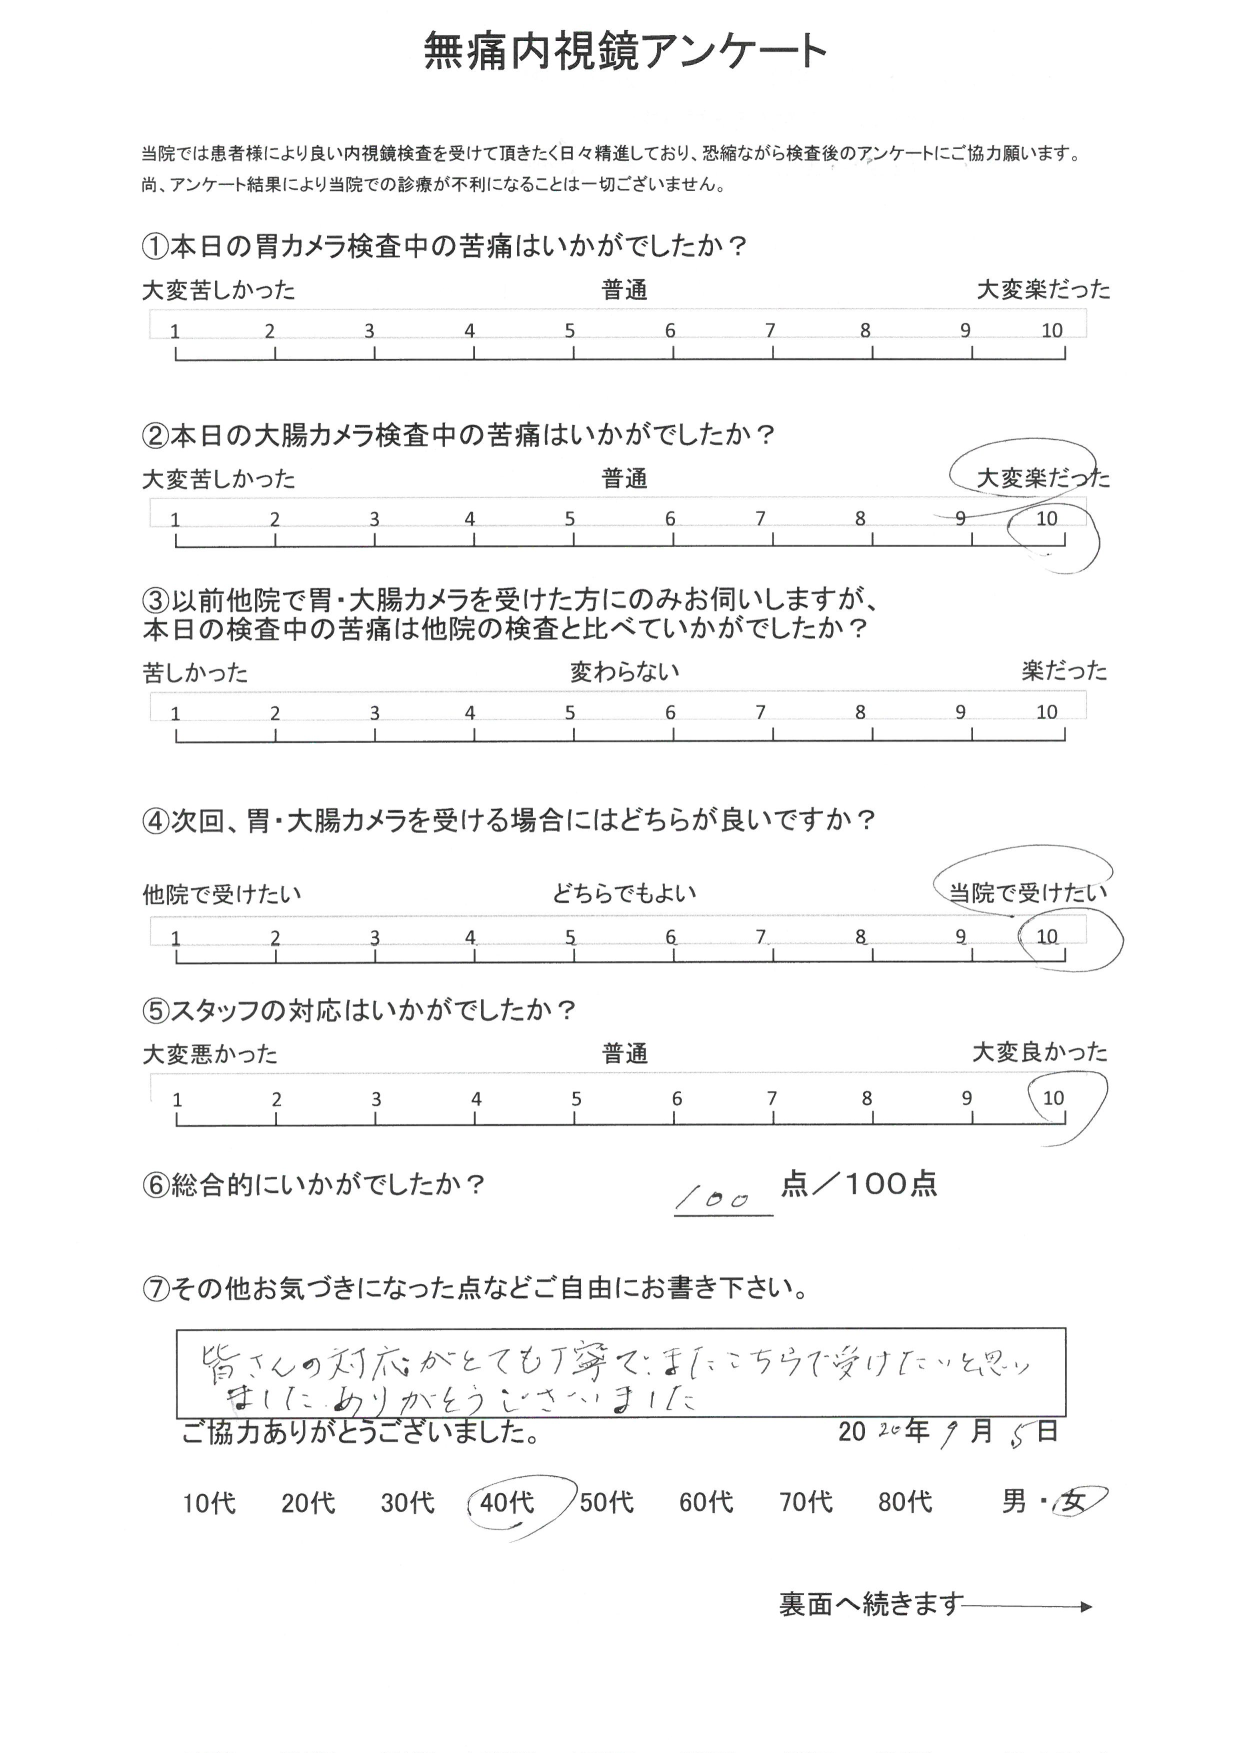 無痛内視鏡アンケート
当院では患者様により良い内視鏡検査を受けて頂きたく日々精進しており、恐縮ながら検査後のアンケートにご協力願います。
尚、アンケート結果により当院での診療が不利になることは一切ございません。
①本日の胃カメラ検査中の苦痛はいかがでしたか？
大変苦しかった 普通 大変楽だった
1 2 3 4 5 6 7 8 9 10
②本日の大腸カメラ検査中の苦痛はいかがでしたか？
大変苦しかった 普通 大変楽だった
1 2 3 4 5 6 7 8 9 10
③以前他院で胃・大腸カメラを受けた方にのみお伺いしますが、
本日の検査中の苦痛は他院の検査と比べていかがでしたか？
苦しかった 変わらない 楽だった
1 2 3 4 5 6 7 8 9 10
④次回、胃・大腸カメラを受ける場合にはどちらが良いですか？
他院で受けたい どちらでもよい 当院で受けたい
1 2 3 4 5 6 7 8 9 10
⑤スタッフの対応はいかがでしたか？
大変悪かった 普通 大変良かった
1 2 3 4 5 6 7 8 9 10
⑥総合的にいかがでしたか？ 100 点／100点
⑦その他お気づきになった点などご自由にお書き下さい。
皆さんの対応がとても丁寧で、またこちらで受けたいと思い
ました。ありがとうございました
ご協力ありがとうございました。 2020年9月5日
10代 20代 30代 40代 50代 60代 70代 80代 男・女
裏面へ続きます